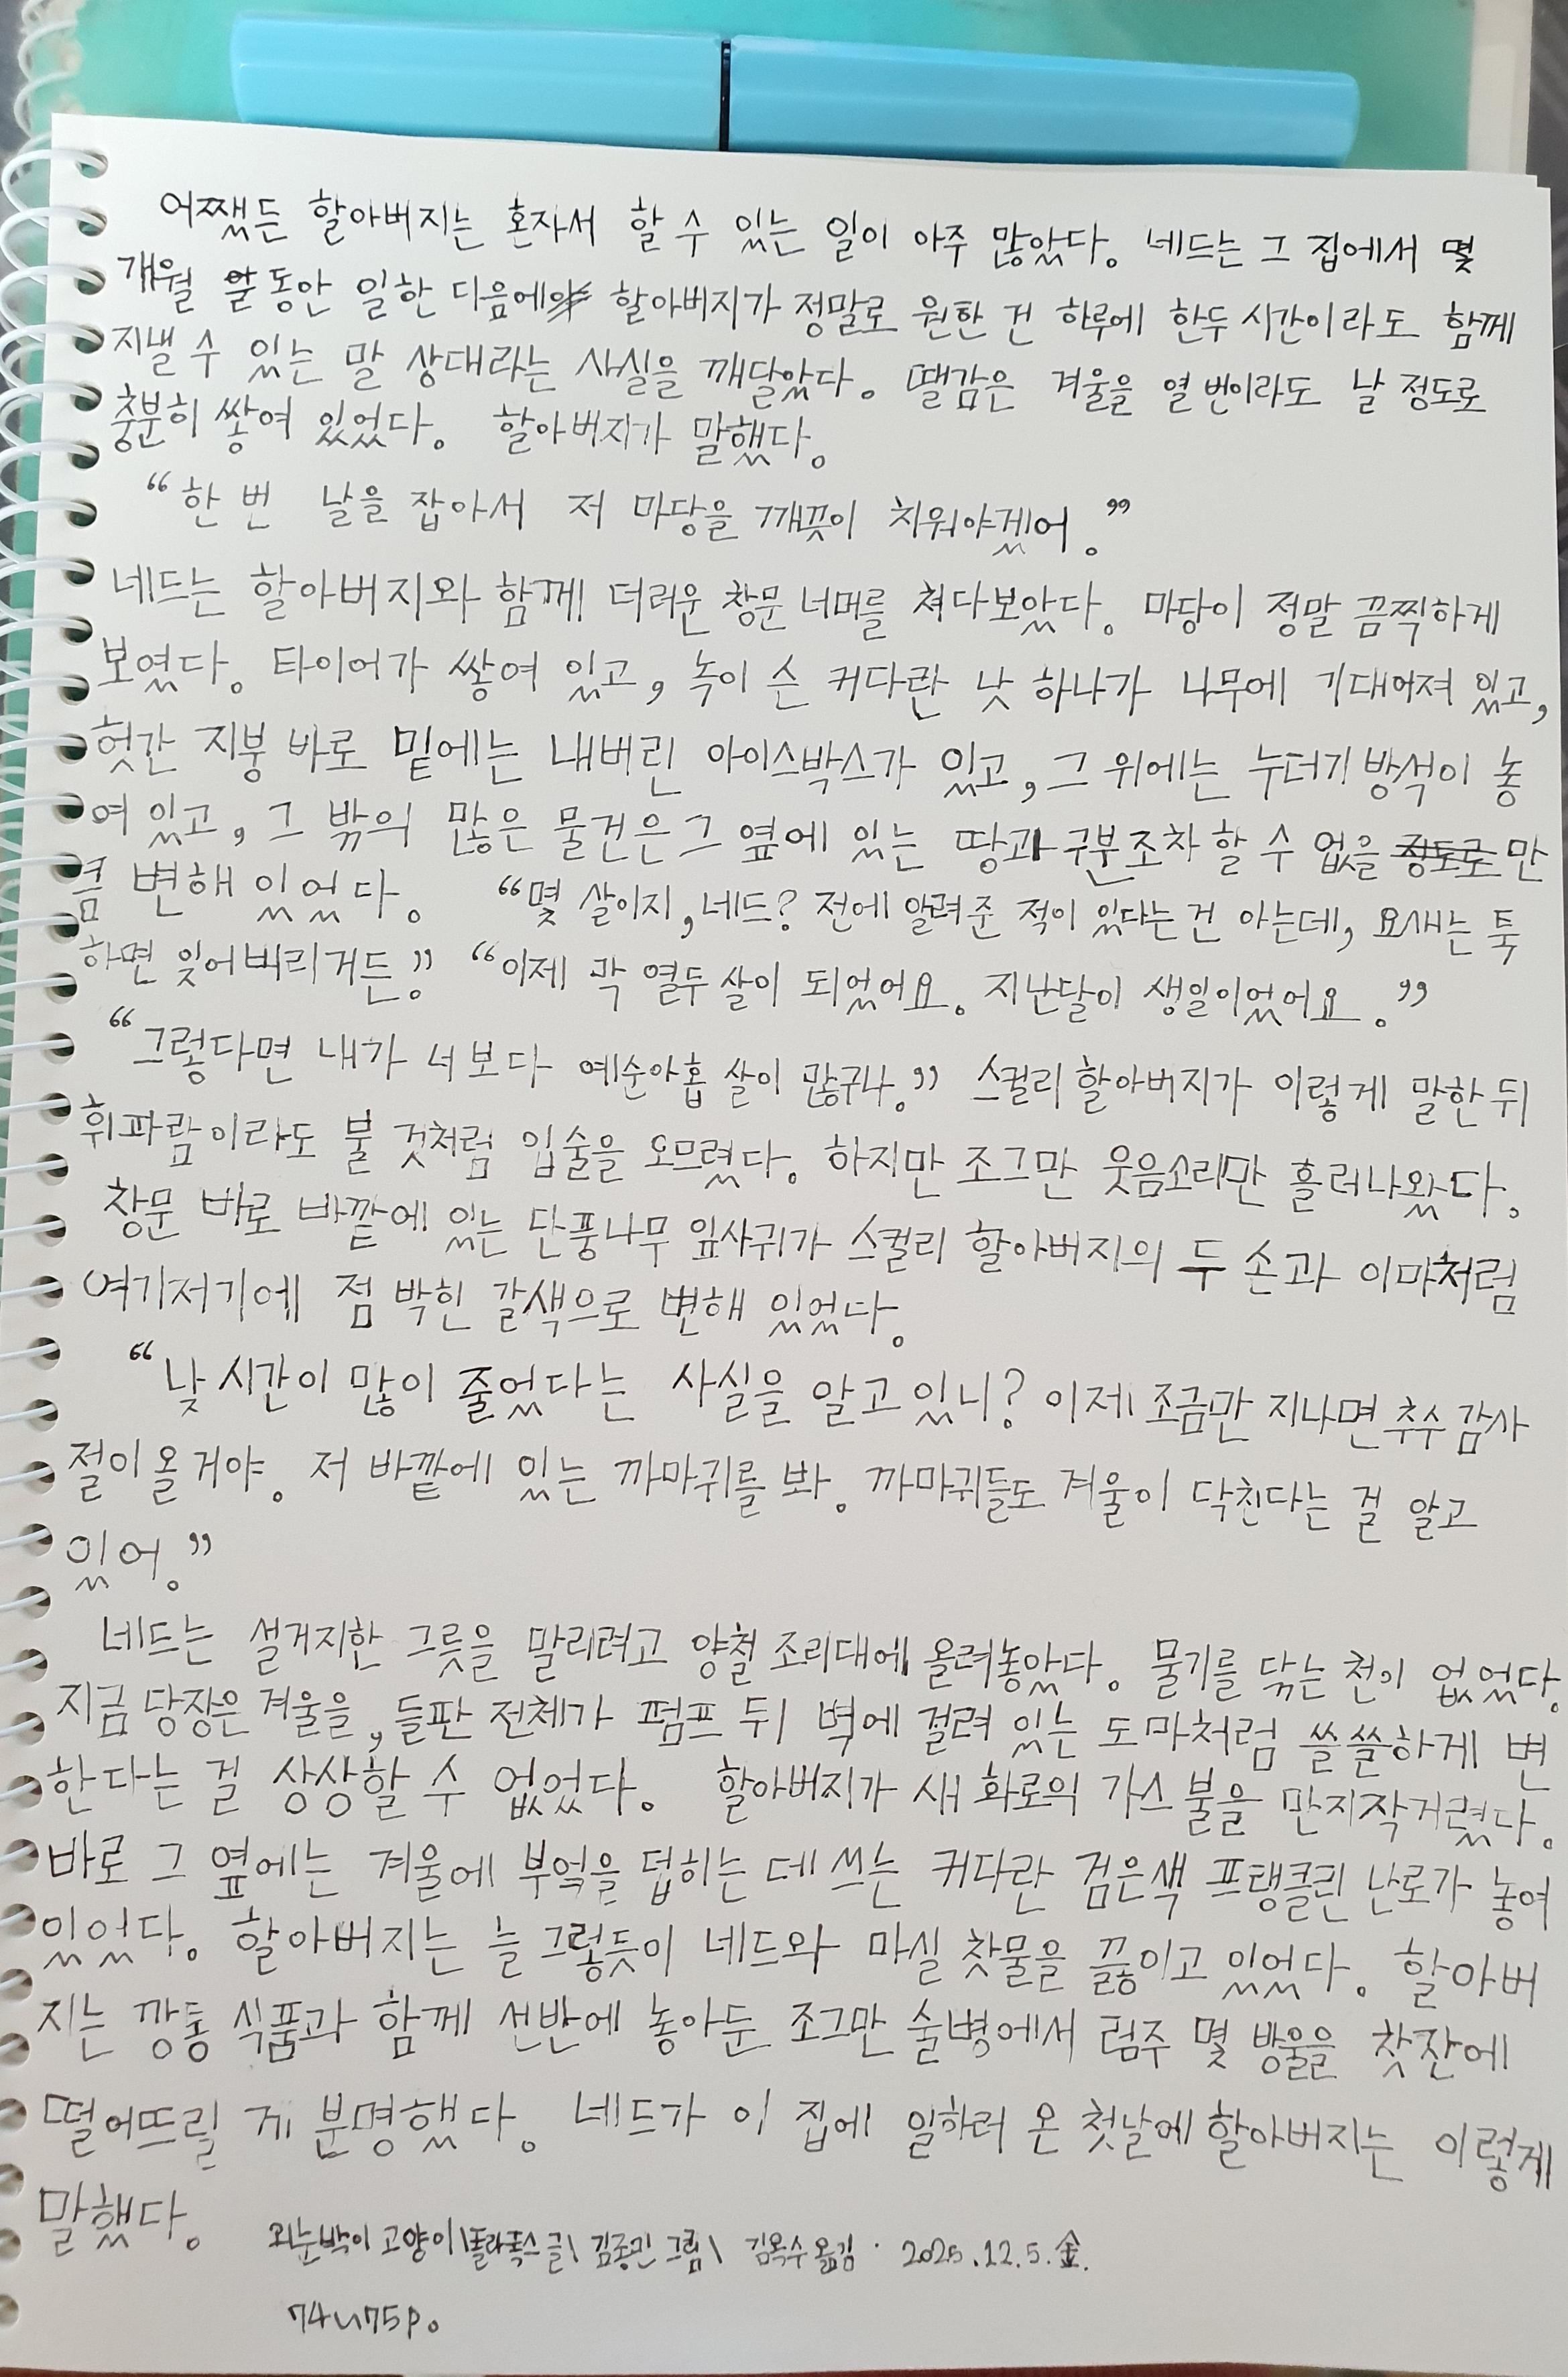 어쨌든 할아버지는 혼자서 할 수 있는 일이 아주 많았다. 네드는 그 집에서 몇
개월 동안 일한 다음에 할아버지가 정말로 원한 건 하루에 한두 시간이라도 함께
지낼 수 있는 말 상대라는 사실을 깨달았다. 땔감은 겨울을 열 번이라도 날 정도로
충분히 쌓여 있었다. 할아버지가 말했다.
“한 번 날을 잡아서 저 마당을 깨끗이 치워야겠어.”
네드는 할아버지와 함께 더러운 창문 너머를 쳐다보았다. 마당이 정말 끔찍하게
보였다. 타이어가 쌓여 있고, 녹이 슨 커다란 낫 하나가 나무에 기대어져 있고,
헛간 지붕 바로 밑에는 내버린 아이스박스가 있고, 그 위에는 누더기 방석이 놓
여 있고, 그 밖의 많은 물건은 그 옆에 있는 땅과 구분조차 할 수 없을 만
큼 변해 있었다. “몇 살이지, 네드? 전에 알려준 적이 있다는 건 아는데, 요새는 툭
하면 잊어버리거든.” “이제 막 열두 살이 되었어요. 지난달이 생일이었어요.”
“그렇다면 내가 너보다 예순아홉 살이 많구나.” 스컬리 할아버지가 이렇게 말한 뒤
휘파람이라도 불 것처럼 입술을 오므렸다. 하지만 조그만 웃음소리만 흘러나왔다.
창문 바로 바깥에 있는 단풍나무 잎사귀가 스컬리 할아버지의 두 손과 이마처럼
여기저기에 점 박힌 갈색으로 변해 있었다.
“낮 시간이 많이 줄었다는 사실을 알고 있니? 이제 조금만 지나면 추수감사
절이 올 거야. 저 바깥에 있는 까마귀를 봐. 까마귀들도 겨울이 닥친다는 걸 알고
있어.”
네드는 설거지한 그릇을 말리려고 양철 조리대에 올려놓았다. 물기를 닦는 천이 없었다.
지금 당장은 겨울을, 들판 전체가 펌프 뒤 벽에 걸려 있는 도마처럼 쓸쓸하게 변
한다는 걸 상상할 수 없었다. 할아버지가 새 화로의 가스 불을 만지작거렸다.
바로 그 옆에는 겨울에 부엌을 덥히는 데 쓰는 커다란 검은색 프랭클린 난로가 놓여
있었다. 할아버지는 늘 그렇듯이 네드와 마실 찻물을 끓이고 있었다. 할아버
지는 깡통 식품과 함께 선반에 놓아둔 조그만 술병에서 럼주 몇 방울을 찻잔에
떨어뜨릴 게 분명했다. 네드가 이 집에 일하러 온 첫날에 할아버지는 이렇게
말했다.
외눈박이 고양이\폴라폭스 글\ 김종민 그림\ 김옥수 옮김 · 2025.12.5.金.
74~75p.